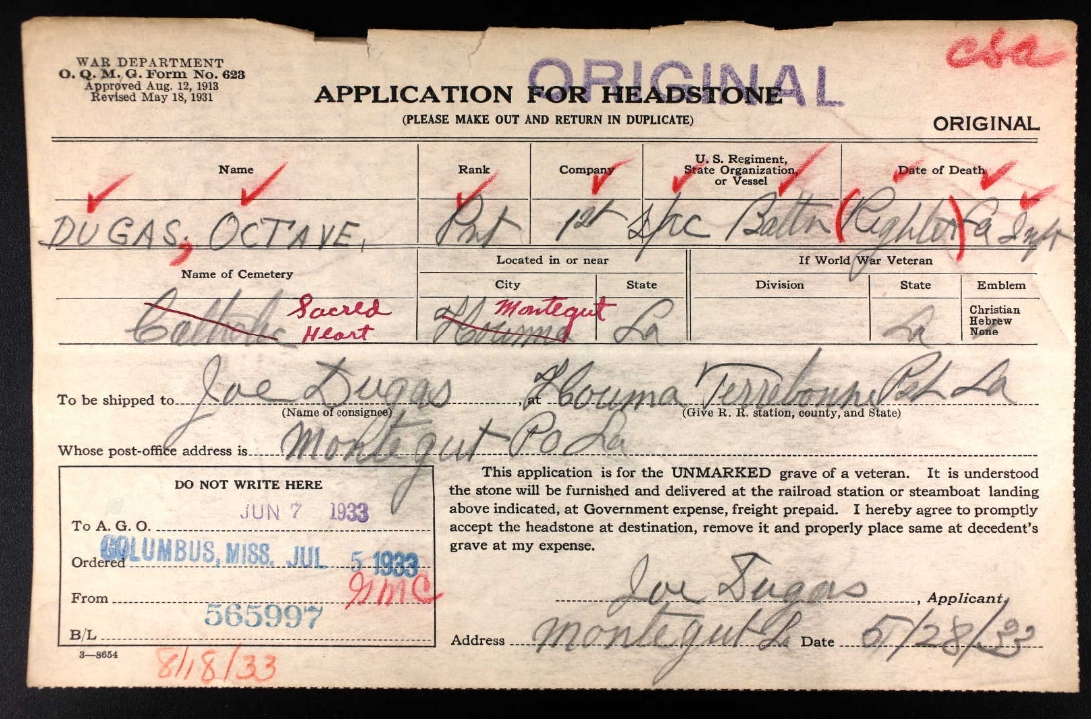 WAR DEPARTMENT
O. Q. M. G. Form No. 623
Approved Aug. 12, 1913
Revised May 18, 1931
ORIGINAL
csa
APPLICATION FOR HEADSTONE
(PLEASE MAKE OUT AND RETURN IN DUPLICATE)
ORIGINAL
Name Rank Company U. S. Regiment, State Organization, or Vessel Date of Death
DUGAS, OCTAVE, Pvt 1st Spc Battn (Rightor) La Inft
Name of Cemetery Located in or near If World War Veteran
City State Division State Emblem
Catholic Sacred Heart Houma Montegut La La Christian Hebrew None
To be shipped to Joe Dugas at Houma Terrebonne Psh La
(Name of consignee) (Give R. R. station, county, and State)
Whose post-office address is Montegut PO La
DO NOT WRITE HERE
To A. G. O. JUN 7 1933
Ordered COLUMBUS, MISS. JUL 5 1933
From GMC
565997
B/L
3—8654
8/18/33
This application is for the UNMARKED grave of a veteran. It is understood
the stone will be furnished and delivered at the railroad station or steamboat landing
above indicated, at Government expense, freight prepaid. I hereby agree to promptly
accept the headstone at destination, remove it and properly place same at decedent's
grave at my expense.
Joe Dugas, Applicant
Address Montegut La Date 5/28/33